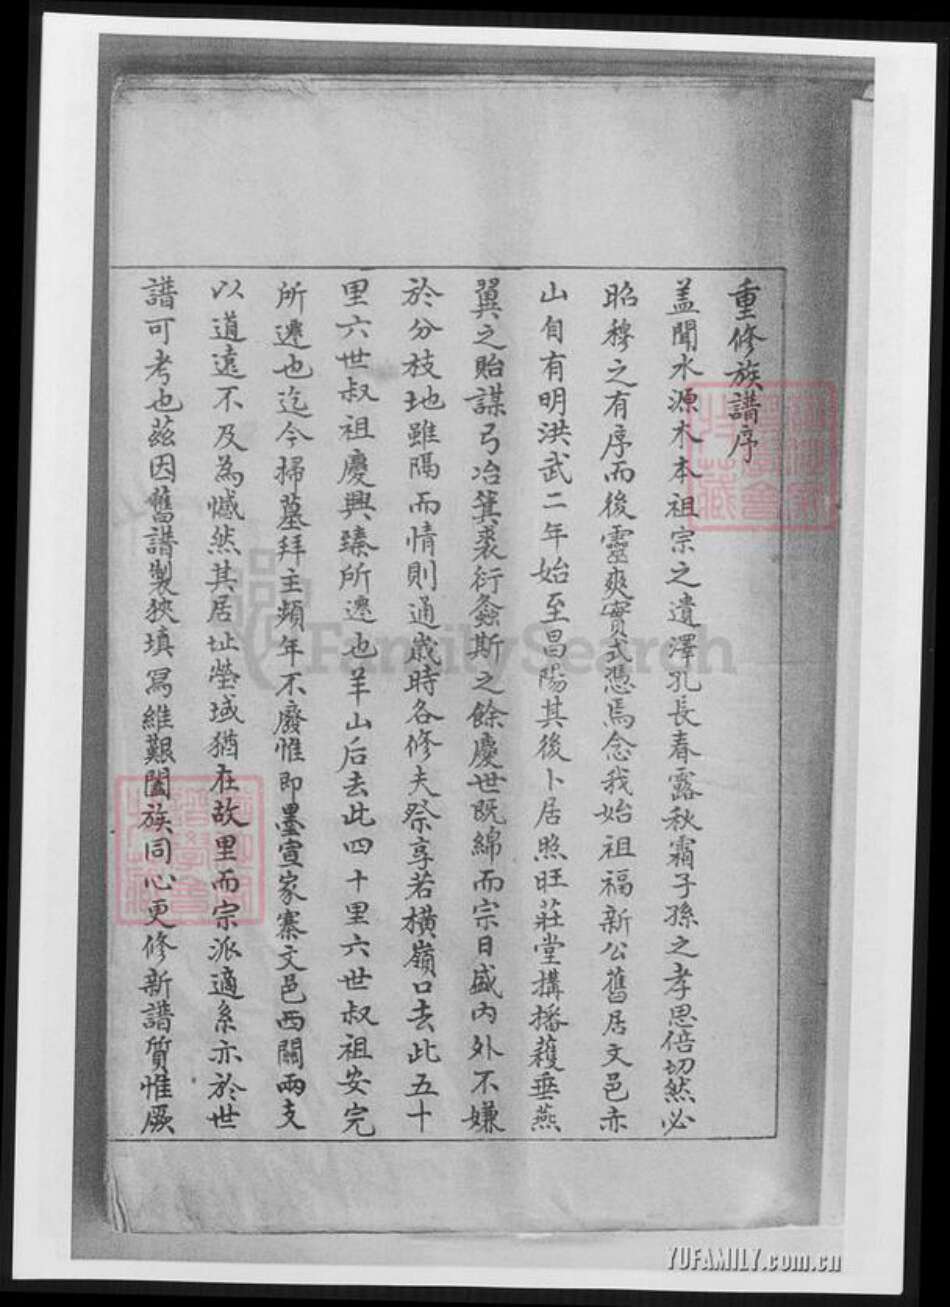 重修族譜序
盖聞水源木本祖宗之遺澤孔長春露秋霜子孫之孝思倍切然必
昭穆之有序而後靈爽實式憑焉念我始祖福新公舊居文邑亦
山自有明洪武二年始至昌陽其後卜居照旺莊堂搆播穫垂燕
翼之貽謀弓冶箕裘衍螽斯之餘慶世既綿而宗日盛内外不嫌
於分枝地雖隔而情則通歲時各修夫祭享若橫嶺口去此五十
里六世叔祖慶興臻所遷也羊山后去此四十里六世叔祖安完
所遷也迄今掃墓拜主頻年不廢惟即墨宣家寨文邑西關兩支
以道遠不及為憾然其居址塋域猶在故里而宗派適系亦於世
譜可考也茲因舊譜製狹填寫維艱闔族同心更修新譜質惟厥
FamilySearch
YUFAMILY.com.cn